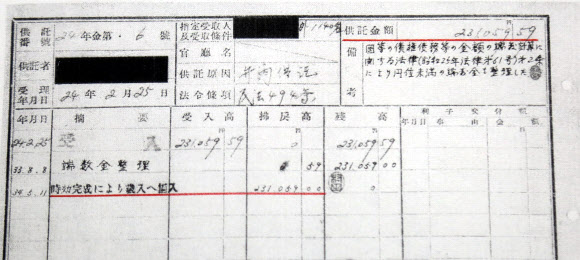 供託番號 24年金第・6號
指定受取人及受取條件 1140名
供託金額 円 231,059 59
供託者
官廳名
備考
国等の債権債務等の金額の端数計算に
関する法律(昭和25年法律第61号)第2条
により円位未満の端数金を整理した
供託原因 弁済供託
受理年月日 24年2月25日
法令條項 民法494条
年月日 摘要 受入高 拂戻高 残高 利子交付額
年月日 事由 金額
24.2.25 受入 231,059 59 0 231,059 59
33.8.8 端数金整理 59 231,059 00
34.5.11 時効完成により歳入へ組入 231,059 00 0